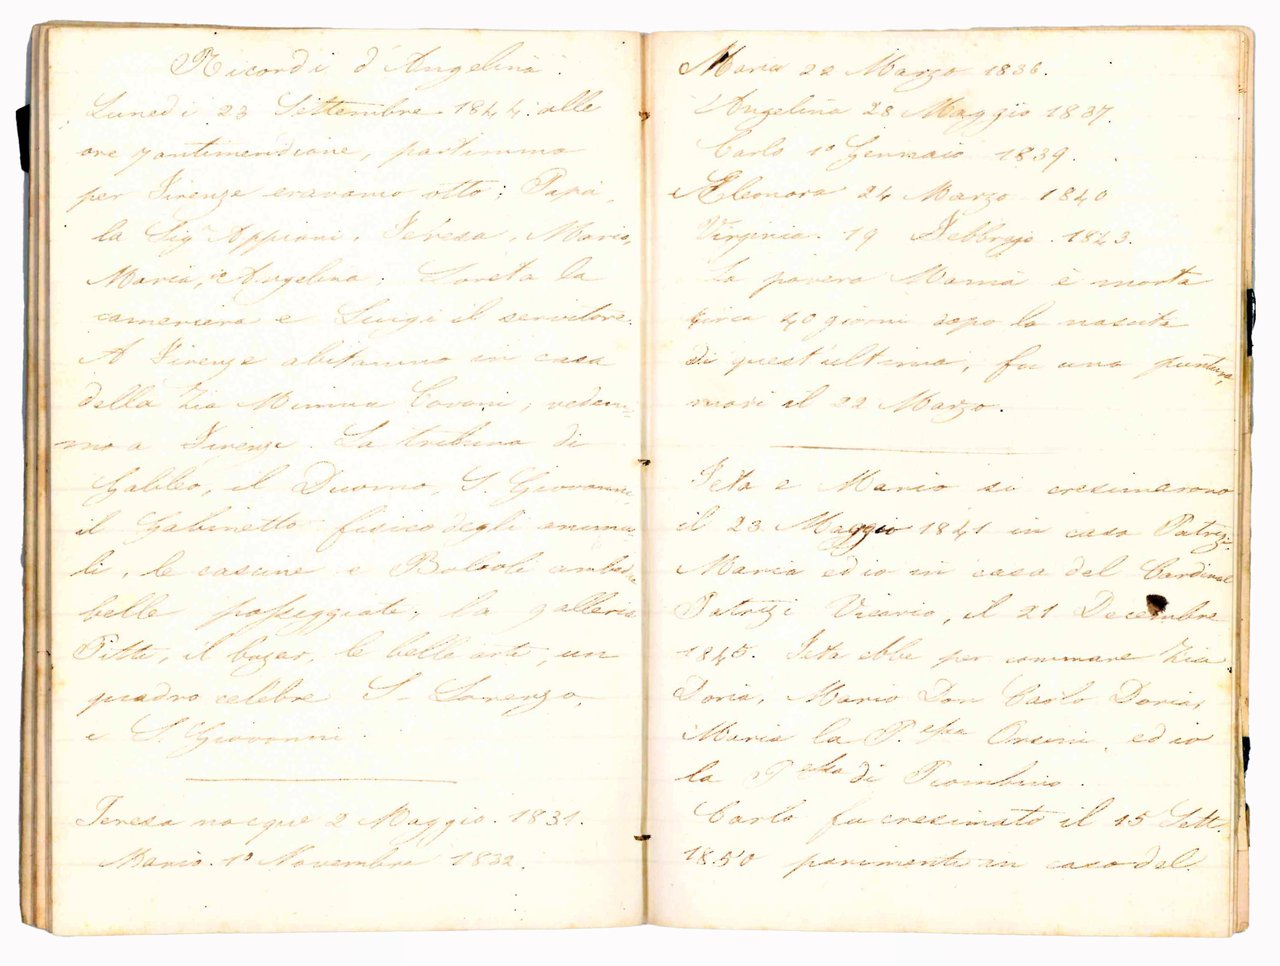 Ricordi d'Angelina.
Lunedì 23 Settembre 1844. alle
ore 7 antimeridiane, partimmo
per Firenze eravamo otto; Papà,
la Sig.ra Appiani, Teresa, Mario,
Maria, io Angelina; Loreta la
cameriera e Luigi il servitore.
A Firenze abitammo in casa
della Zia Mimma Covoni; vedem-
mo a Firenze. La tribuna di
Galileo, il Duomo, S. Giovanni,
il Gabinetto fisico degli anima-
li, le cascine e Boboli ambedue
belle passeggiate; la galleria
Pitti, il bazar, le belle arti, un
quadro celebre S. Lorenzo,
e S. Giovanni.
Teresa nacque 2 Maggio. 1831.
Mario. 1º Novembre 1832.
Maria 22 Marzo 1836.
Angelina 28 Maggio 1837.
Carlo 1º Gennaio 1839.
Eleonora 24 Marzo 1840
Virginia. 19 Febbrajo. 1843.
La povera Mamà è morta
circa 40 giorni dopo la nascita
di quest'ultima, fu una puntura,
morì il 22 Marzo.
Teta e Mario si cresimarono
il 23 Maggio 1841 in casa Patrizi.
Maria ed io in casa del Cardinal
Patrizi Vicario, il 21 Decembre
1845. Teta ebbe per commare Zia
Doria, Mario Don Carlo Doria,
Maria la P.essa Orsini, ed io
la P.essa di Piombino.
Carlo fu cresimato il 15 Sett.
1850 parimenti in casa del